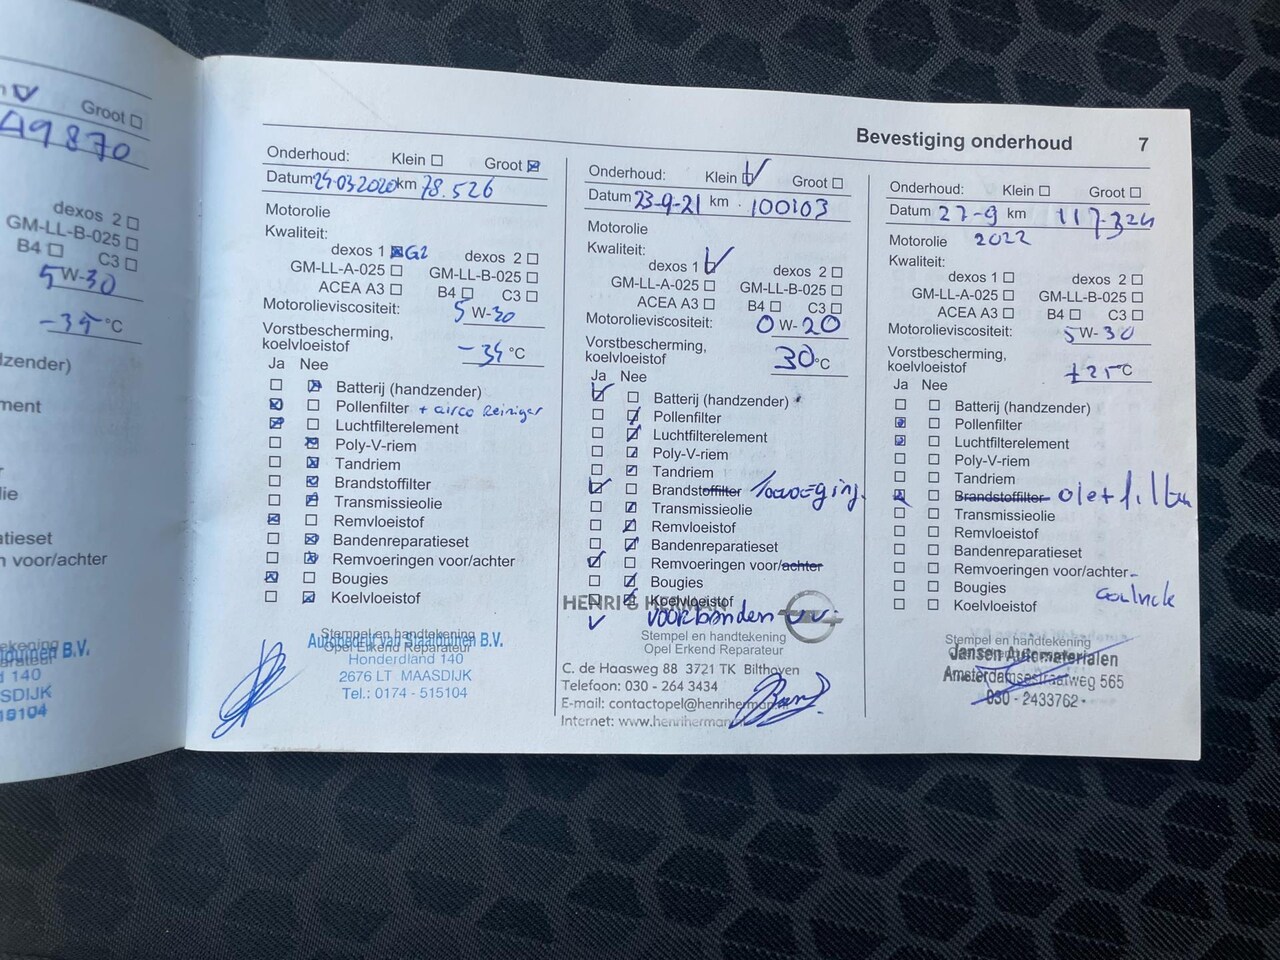 Groot
49870
dexos 2
GM-LL-B-025
B4 C3
5W-30
-35 °C
dzender)
ment
lie
atieset
n voor/achter
B.V.
140
SDIJK
Bevestiging onderhoud 7
Onderhoud: Klein Groot
Datum 24-03-2020 km 78.526
Motorolie
Kwaliteit:
dexos 1 G2 dexos 2
GM-LL-A-025 GM-LL-B-025
ACEA A3 B4 C3
Motorolieviscositeit: 5 W-30
Vorstbescherming,
koelvloeistof -34 °C
Ja Nee
Batterij (handzender)
Pollenfilter + airco Reiniger
Luchtfilterelement
Poly-V-riem
Tandriem
Brandstoffilter
Transmissieolie
Remvloeistof
Bandenreparatieset
Remvoeringen voor/achter
Bougies
Koelvloeistof
Stempel en handtekening
Opel Erkend Reparateur
Autobedrijf van Staalduinen B.V.
Honderdland 140
2676 LT MAASDIJK
Tel.: 0174 - 515104
Onderhoud: Klein Groot
Datum 23-9-21 km 100103
Motorolie
Kwaliteit:
dexos 1 dexos 2
GM-LL-A-025 GM-LL-B-025
ACEA A3 B4 C3
Motorolieviscositeit: 0 W-20
Vorstbescherming,
koelvloeistof 30 °C
Ja Nee
Batterij (handzender)
Pollenfilter
Luchtfilterelement
Poly-V-riem
Tandriem
Brandstoffilter toevoeging
Transmissieolie
Remvloeistof
Bandenreparatieset
Remvoeringen voor/achter
Bougies
Koelvloeistof
HENRI & HERMAN
voorbanden
Stempel en handtekening
Opel Erkend Reparateur
C. de Haasweg 88 3721 TK Bilthoven
Telefoon: 030 - 264 3434
E-mail: contactopel@henriherman.nl
Internet: www.henriherman.nl
Onderhoud: Klein Groot
Datum 27-9 km 117.324
Motorolie 2022
Kwaliteit:
dexos 1 dexos 2
GM-LL-A-025 GM-LL-B-025
ACEA A3 B4 C3
Motorolieviscositeit: 5W-30
Vorstbescherming,
koelvloeistof ±25°C
Ja Nee
Batterij (handzender)
Pollenfilter
Luchtfilterelement
Poly-V-riem
Tandriem
Brandstoffilter
Transmissieolie
Remvloeistof
Bandenreparatieset
Remvoeringen voor/achter
Bougies
Koelvloeistof
Stempel en handtekening
Jansen Automaterialen
Amsterdamsestraatweg 565
030 - 2433762